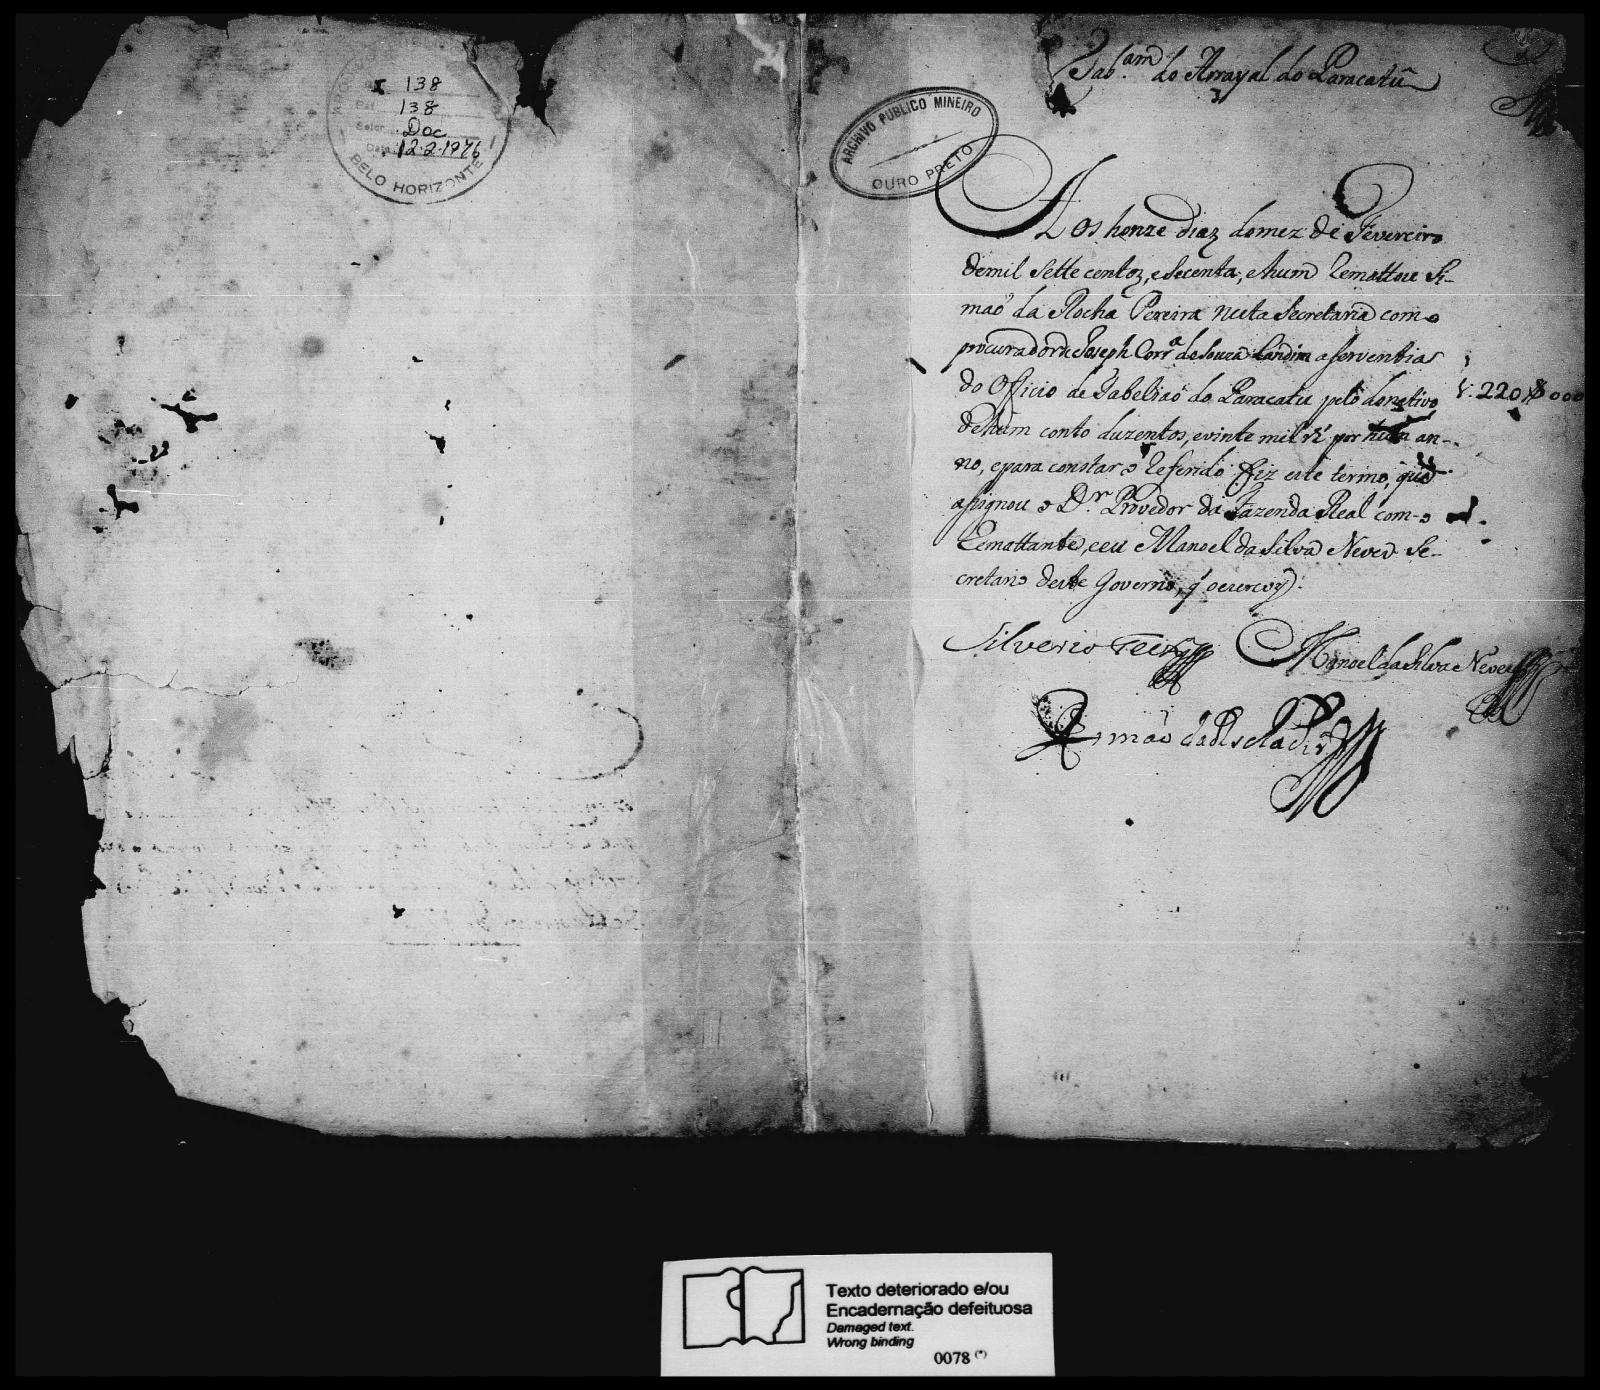 138
138
Doc
12-2-1976
BELO HORIZONTE
ARCHIVO PUBLICO MINEIRO
OURO PRETO
Tab.am do Arrayal do Paracatû
Aos honze diaz do mez de Fevereiro
de mil Sette centoz, e secenta, e hum Remattou Si-
maõ da Rocha Pereira nesta Secretaria como
procurador de Joseph Corr.a de Souza Landim a serventia
do Officio de Tabeliaõ do Paracatu pelo donativo
1.220$000
de hum conto duzentos, e vinte mil rs por hum an-
no, e para constar o Referido fiz este termo, que
assignou o D.r Provedor da Fazenda Real com o
Remattante, e eu Manoel da Silva Neves Se-
cretario deste Governo, q o escrevy.
Silverio Teix.ra
Manoel da Silva Neves
Simaõ da
Texto deteriorado e/ou
Encadernação defeituosa
Damaged text.
Wrong binding
0078 (*)